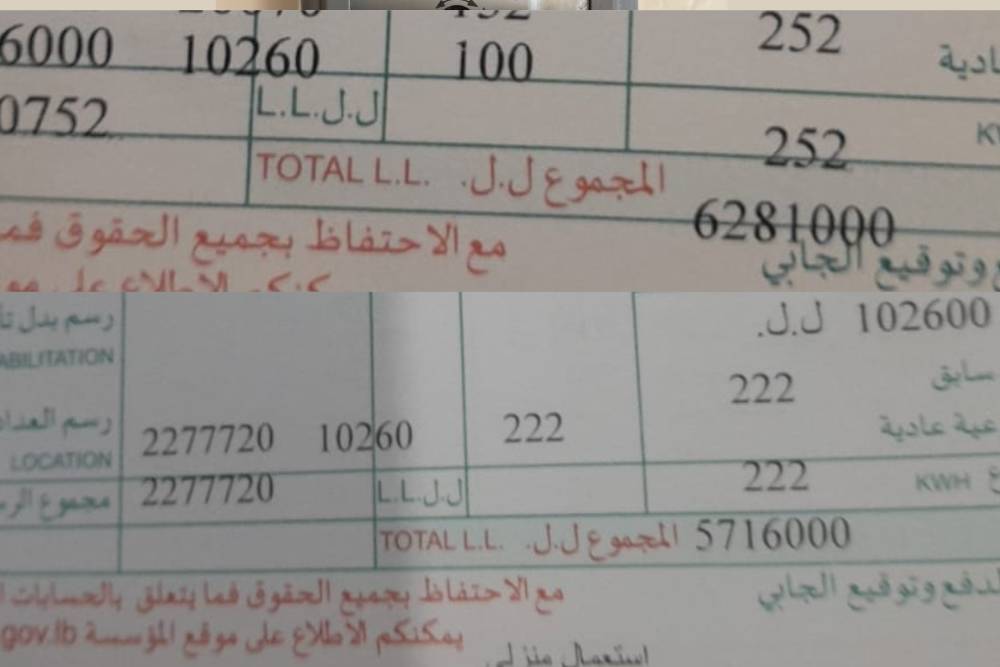 252
6000 10260 100 252 عادية
0752 ل.ل. L.L. 252
TOTAL L.L. المجموع ل.ل. 6281000
مع الاحتفاظ بجميع الحقوق وتوقيع الجابي
رسم بدل 102600 ل.ل.
ABILITATION 222 سابق
رسم العداد 2277720 10260 222 عادية
LOCATION
مجموع 2277720 L.L. ل.ل. 222 KWH
TOTAL L.L. المجموع ل.ل. 5716000
مع الاحتفاظ بجميع الحقوق فما يتعلق بالحسابات وتوقيع الجابي
يمكنكم الأطلاع على موقع المؤسسة gov.lb
استعمال منزلي